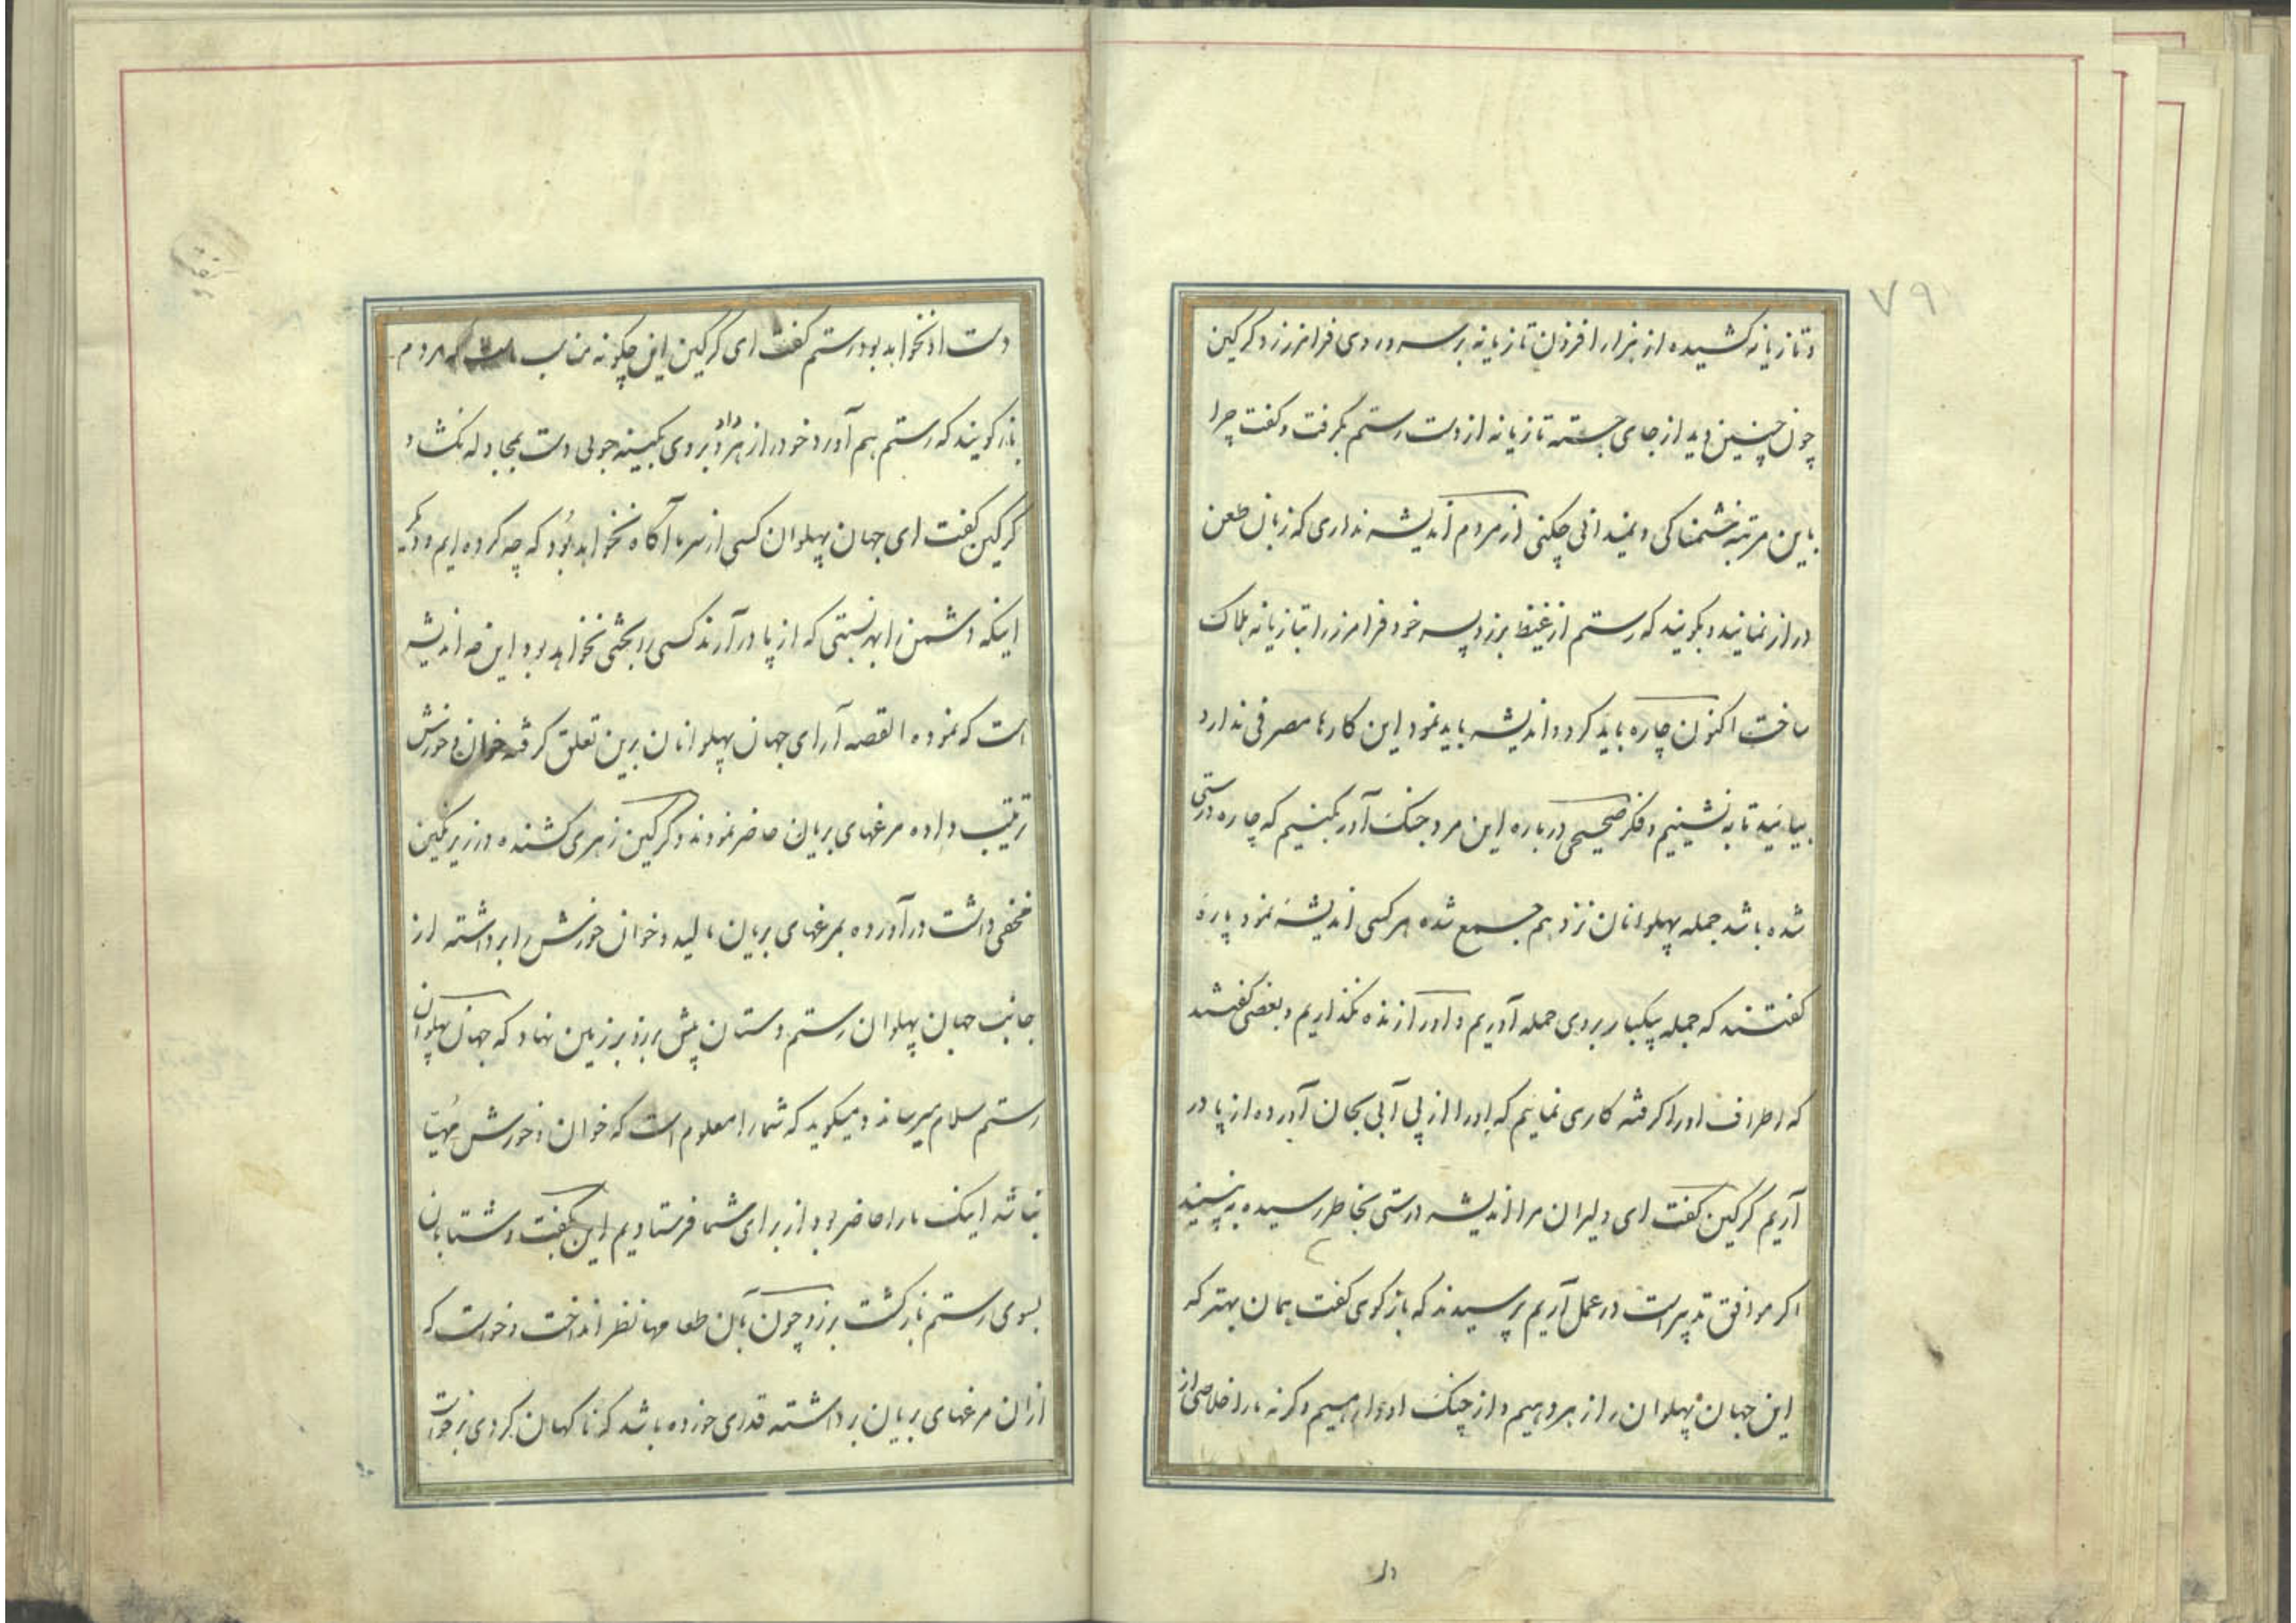 ۷۹
و تازیانه کشیده از هزار افزون تازیانه بر سر و روی فرامرز زد گرگین
چون چنین دید از جای جسته تازیانه از دست رستم بگرفت و گفت چرا
باین مرتبه خشمناکی و نمیدانی چکنی از مردم اندیشه نداری که زبان طعن
دراز نمایند و بگویند که رستم از غیظ برزو پسر خود فرامرز را بتازیانه هلاک
ساخت اکنون چاره باید کرد و اندیشه باید نمود این کارها مصرفی ندارد
بیائید تا به نشینیم و فکر صحیحی درباره این مرد جنک آور بکنیم که چاره درستی
شده باشد جمله پهلوانان نزد هم جمع شده هر کسی اندیشه نمود پاره
گفتند که جمله بیکبار بروی حمله آوریم و او را زنده نگذاریم و بعضی گفتند
که اطراف او را گرفته کاری نمایم که او را از پی آبی بجان آورده از پا در
آریم گرگین گفت ای دلیران مرا اندیشه درستی بخاطر رسیده به بینید
اگر موافق تدبیر است در عمل آریم پرسیدند که بازگوی گفت همان بهتر که
این جهان پهلوان را زهر دهیم و از چنک او وارهیم وگرنه ما را خلاصی از
دست او نخواهد بود رستم گفت ای گرگین این چگونه مناسب است که مردم
بازگویند که رستم هم آورد خود را زهر داد بروی کینه جوی دست بمجادله نگشاد
گرگین گفت ای جهان پهلوان کسی از سر ما آگاه نخواهد بود که چه کرده ایم و دیگر
اینکه دشمن را بهر نسبتی که از پا درآرند کسی را بحثی نخواهد بود این چه اندیشه
است که نموده القصه آرای جهان پهلوانان برین تعلق گرفته خوان و خورش
ترتیب داده مرغهای بریان حاضر نمودند و گرگین زهری کشنده در زیر نگین
مخفی داشت درآورده بمرغهای بریان مالید و خوان خورش را برداشته از
جانب جهان پهلوان رستم دستان پیش برزو بر زمین نهاد که جهان پهلوان
رستم سلام میرساند و میگوید که شما را معلوم است که خوان و خورش مهیا
نباشد اینک ما را حاضر بود از برای شما فرستادیم این بگفت و شتابان
بسوی رستم بازگشت برزو چون بآن طعامها نظر انداخت و خواست که
از آن مرغهای بریان برداشته قدری خورده باشد که ناگهان گردی برخواست